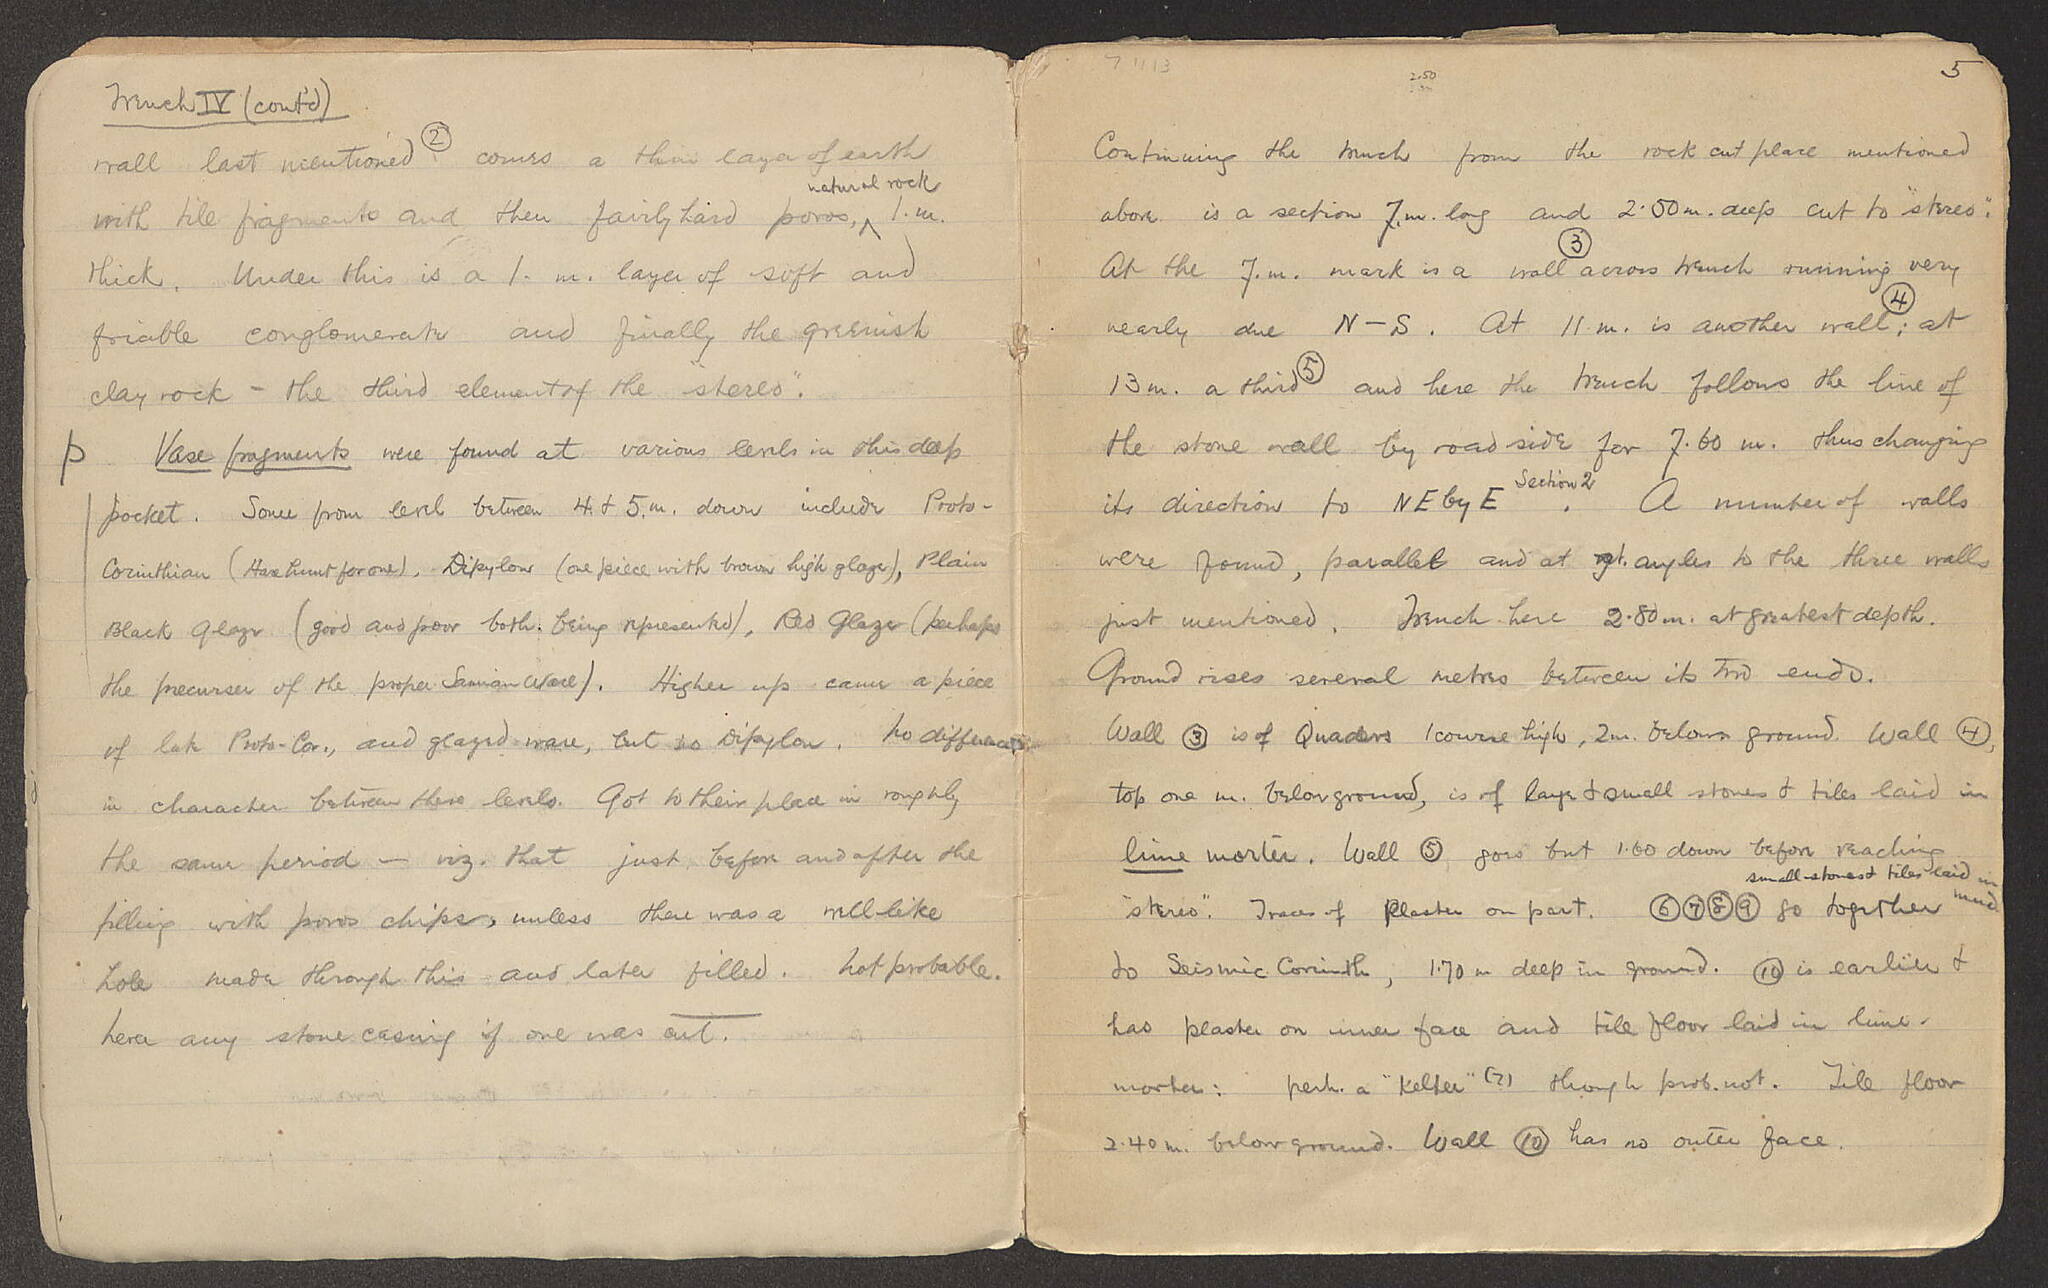 Trench IV (cont'd)
wall last mentioned ② comes a thin layer of earth
natural rock
with tile fragments and then fairly hard poros, ^ 1. m.
thick. Under this is a 1. m. layer of soft and
friable conglomerate and finally the greenish
clay rock – the third element of the "stereo".
p Vase fragments were found at various levels in this deep
pocket. Some from level between 4. & 5. m. down include Proto-
Corinthian (Hare hunt for one), Dipylon (one piece with brown high glaze), Plain
Black Glaze (good and poor both being represented), Red Glaze (perhaps
the precurser of the proper Samian Ware). Higher up came a piece
of late Proto-Cor., and glazed ware, but no Dipylon. No differences
in character between these levels. Got to their place in roughly
the same period – viz. that just before and after the
filling with poros chips, unless there was a well-like
hole made through this and later filled. Not probable.
here any stone casing if one was cut.
7 11 13
2.50
5
Continuing the trench from the rock cut place mentioned
above is a section 7. m. long and 2.50 m. deep cut to "stereo".
At the 7. m. mark is a wall ③ across trench running very
nearly due N–S. At 11 m. is another wall ④; at
13 m. a third ⑤ and here the trench follows the line of
the stone wall by road side for 7.60 m. thus changing
its direction to NE by E Section 2. A number of walls
were found, parallel and at rgt. angles to the three walls
just mentioned. Trench here 2.80 m. at greatest depth.
Ground rises several metres between its two ends.
Wall ③ is of Quaders 1 course high, 2 m. below ground. Wall ④,
top one m. below ground, is of large & small stones & tiles laid in
lime morter. Wall ⑤ goes but 1.60 down before reaching
small stones & tiles laid in mud
"stereo". Traces of plaster on part. ⑥⑦⑧⑨ go together
to Seismic Corinth, 1.70 m deep in ground. ⑩ is earlier &
has plaster on inner face and tile floor laid in lime-
morter: perh. a "Kelter" (?) though prob. not. Tile floor
2.40 m. below ground. Wall ⑩ has no outer face.